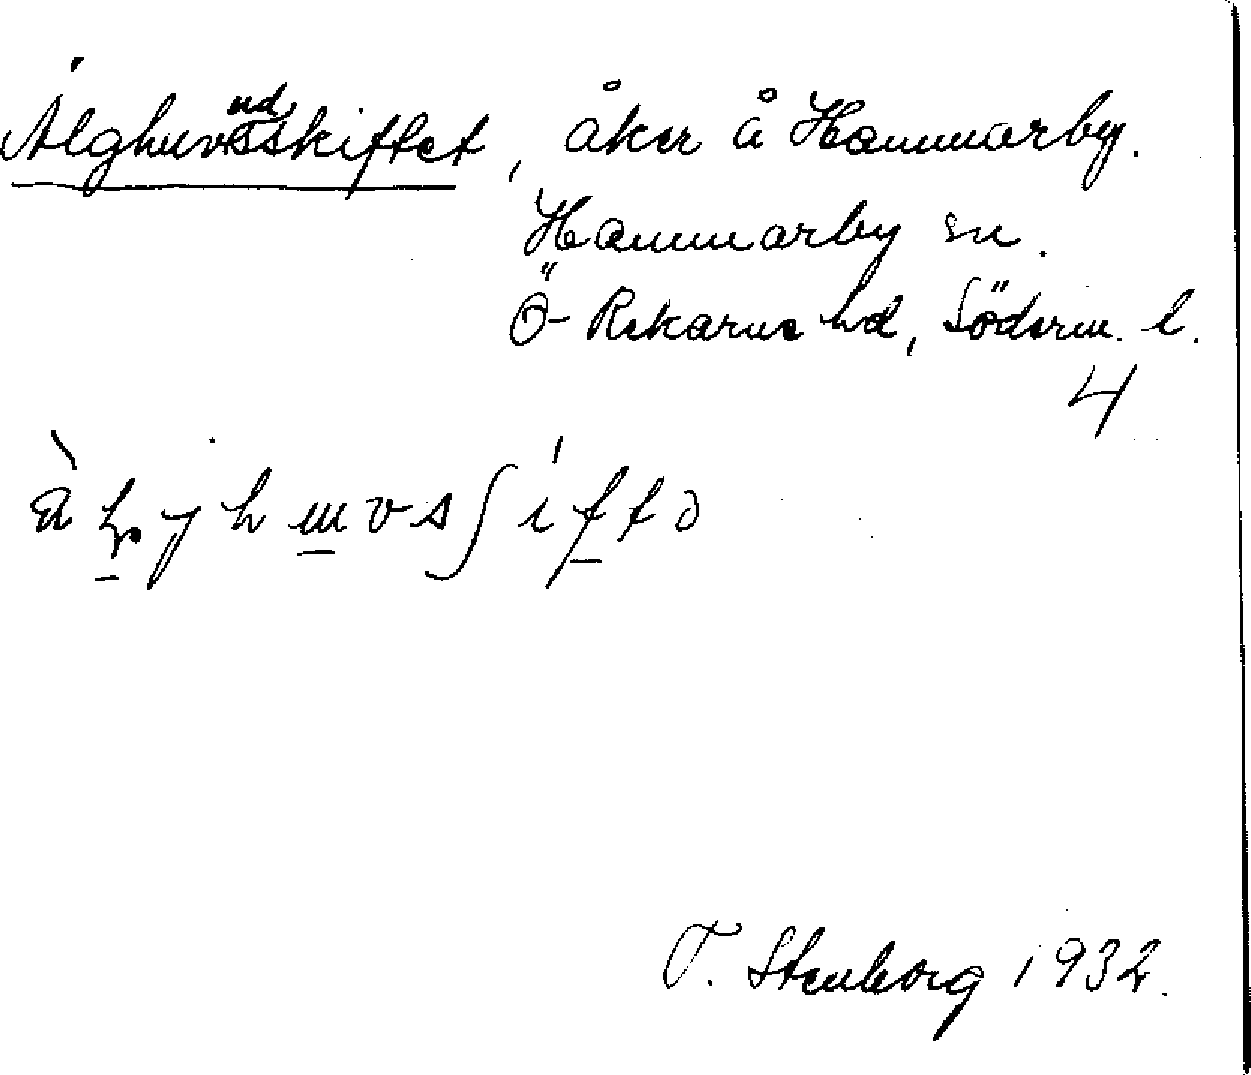 Älghuvudsskiftet, åker å Hammarby.
Hammarby sn.
Ö- Rekarne hd, Söderm. l.
4
T. Stenborg 1932.